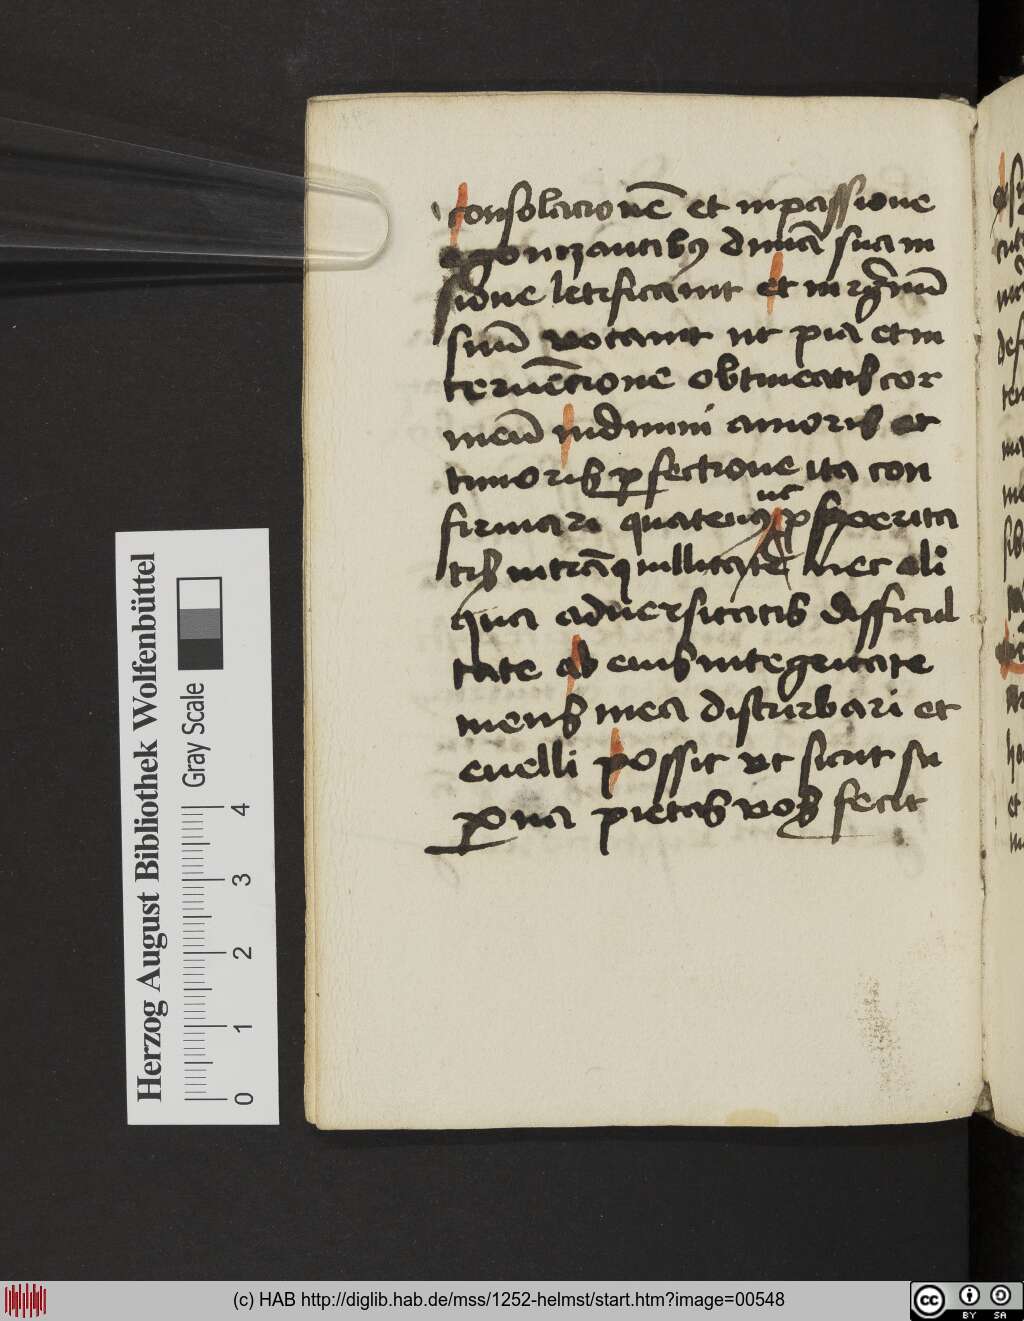 consolacionē et in passione
agonizantibꝰ diuinā sua in
sione letificauit et in rꝫgnū
suū vocauit vt pia et in
teruēcione obtineatis cor
meū in diuini amoris et
timoris ꝑfectione ita con
firmari quatenꝰ nec ꝓsperita
tis in trāquillitate nec ali
qua aduersitatis difficul
tate ab eius integritate
mens mea disturbari et
euelli possit vt sicut su
ꝑna pietas vos fecit
Herzog August Bibliothek Wolfenbüttel
Gray Scale
0 1 2 3 4
(c) HAB http://diglib.hab.de/mss/1252-helmst/start.htm?image=00548
cc BY SA